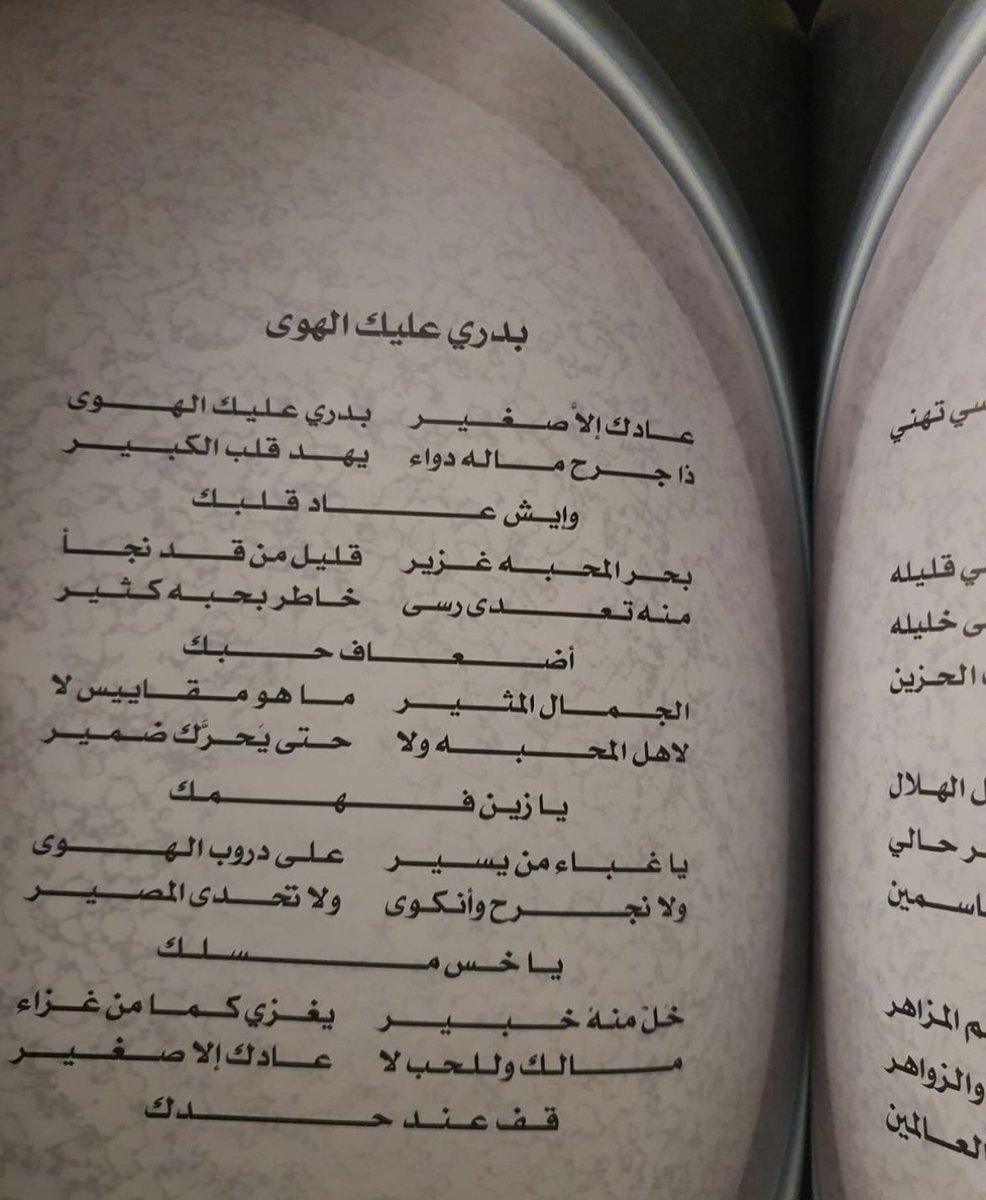 بدري عليك الهوى
عادك إلاَّ صغير بدري عليك الهوى
ذا جرح ماله دواء يهد قلب الكبير
وإيش عاد قلبك
بحر المحبه غزير قليل من قد نجأ
منه تعدى رسى خاطر بحبه كثير
أضعاف حبك
الجمال المثير ما هو مقاييس لا
لاهل المحبه ولا حتى يَحرَّك ضمير
يا زين فهمك
يا غباء من يسير على دروب الهوى
ولا نجرح وأنكوى ولا تحدى المصير
يا خس مسلك
خَلّ منهُ خبير يغزي كما من غزاء
مالك وللحب لا عادك إلا صغير
قف عند حدك
سي تهني
ي قليله
ى خليله
الحزين
ل الهلال
ر حالي
اسمين
م المزاهر
والزواهر
العالمين